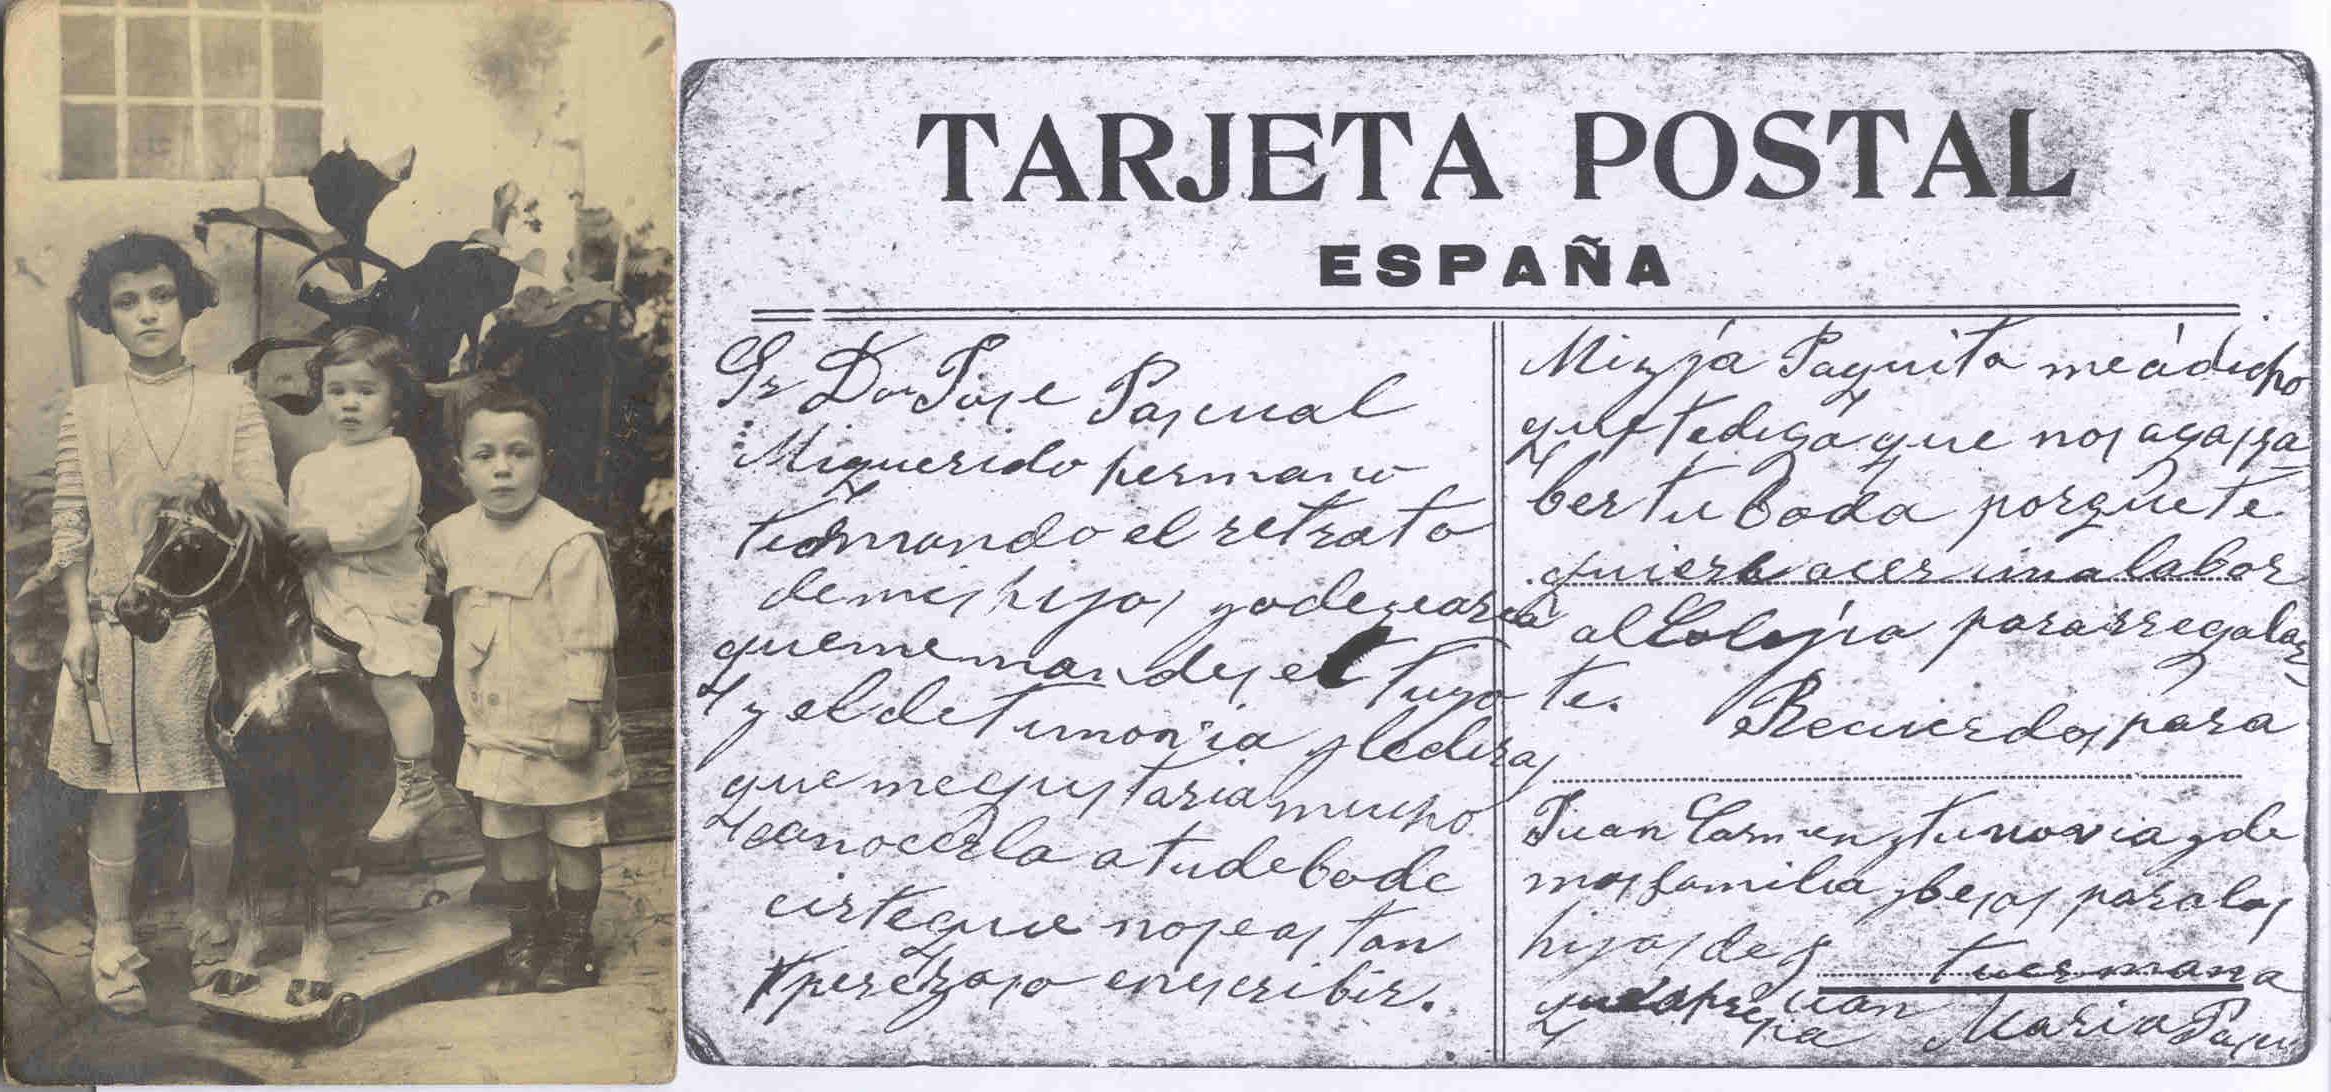 TARJETA POSTAL
ESPAÑA
Sr Don Jose Pascual
Mi querido hermano
te mando el retrato
de mis hijos yo desearia
que me mandes el tuyo
y el de tu novia y le diras
que me gustaria mucho
conocerla a tu debo de
cirte que no seas tan
perezoso en escribir.
Mi yja Paquita me á dicho
que te diga que nos agas sa-
ber tu boda porque te
quiere acer una labor
al Colejio para rregalar-
te. Recuerdos para
Juan Carmen y tu novia y de
mas familia y besos para los
hijos de Juan tu ermana
que apresia Maria Pascu